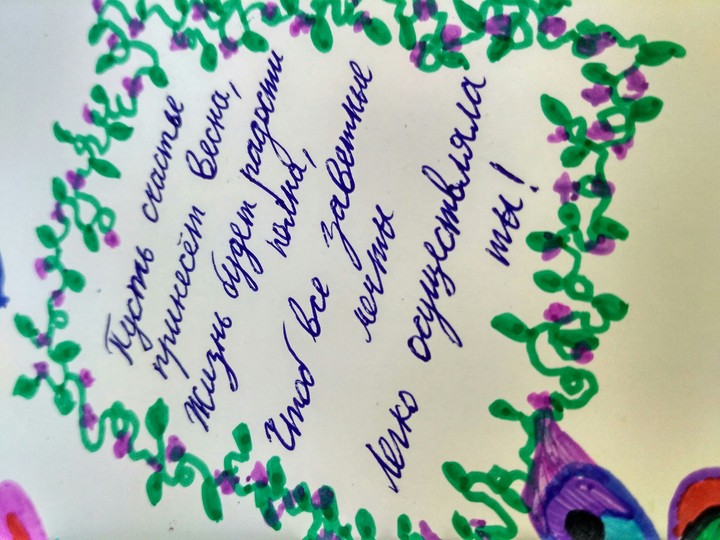 Пусть счастье
принесёт весна,
Жизнь будет радости
полна,
Чтоб все заветные
мечты
Легко осуществляла
ты!